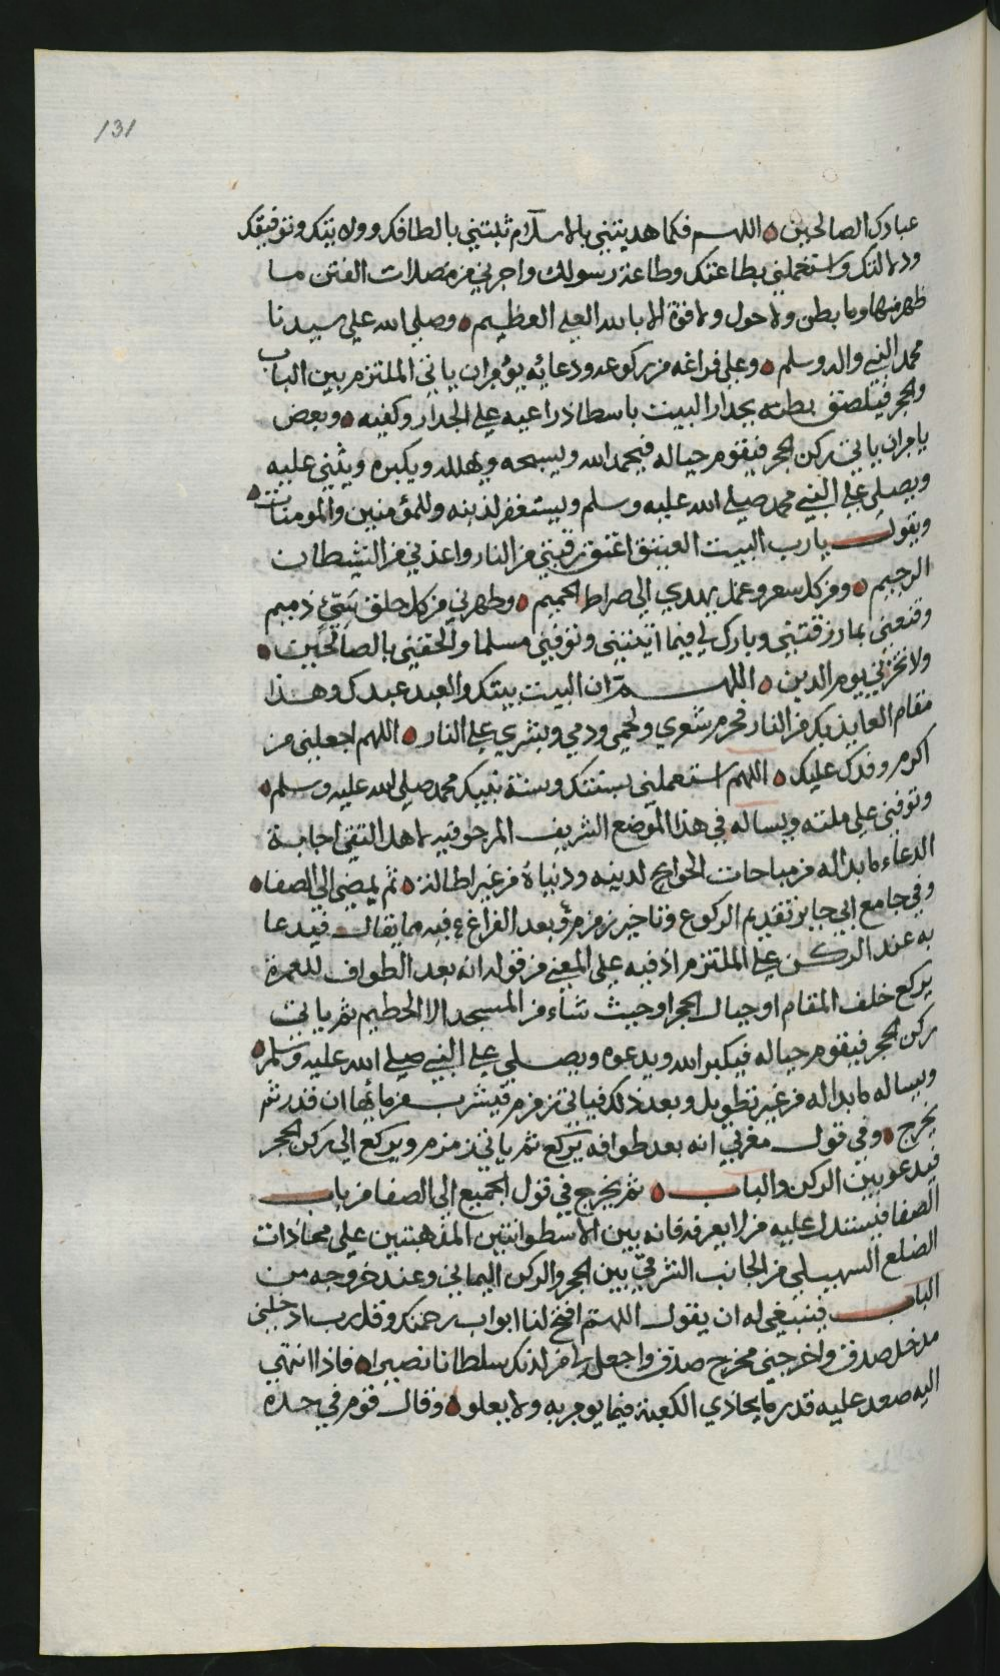 131
عبادك الصالحين اللهم فكما هديتني بالاسلام ثبتني بالطافك وولايتك وتوفيقك
ودلالتك واستعملني بطاعتك وطاعة رسولك واجرني من مضلات الفتن ما
ظهر منها وما بطن ولا حول ولا قوة الا بالله العلي العظيم وصلى الله على سيدنا
محمد النبي واله وسلم وعلى فراغه من ركوعه ودعائه يؤمر ان ياتي الملتزم بين الباب
والحجر فيلصق بطنه بجدار البيت باسطا ذراعيه على الجدار وكفيه وبعض
يامر ان ياتي ركن الحجر فيقوم حياله فيحمد الله ويسبحه ويهلله ويكبره ويثني عليه
ويصلي على النبي محمد صلى الله عليه وسلم ويستغفر لذنبه وللمؤمنين والمومنات
ويقول يا رب البيت العتيق اعتق رقبتي من النار واعذني من الشيطان
الرجيم ومن كل سعر وعمل يهدي الى صراط الجحيم وطهرني من كل خلق سيئ ذميم
وقنعني بما رزقتني وبارك لي فيما اتيتني وتوفني مسلما والحقني بالصالحين
ولا تخزني يوم الدين اللهم ان البيت بيتك والعبد عبدك وهذا
مقام العايذ بك من النار فحرم شعري ولحمي ودمي وبشري على النار اللهم اجعلني من
اكرم وفدك عليك اللهم استعملني بسنتك وسنة نبيك محمد صلى الله عليه وسلم
وتوفني على ملته ويساله في هذا الموضع الشريف المرجو فيه لاهل التقى اجابة
الدعاء ما بدا له من مباحات الحوايج لدينه ودنياه من غير اطالة ثم يمضي الى الصفا
وفي جامع ابي جابر تقديم الركوع وتاخير زمزم وبعد الفراغ فيه مما يقال فيدعا
به عند الركن على الملتزم اذ فيه على المعنى من قوله انه بعد الطواف للعمرة
يركع خلف المقام او حيال الحجر او حيث شاء من المسجد الا الحطيم ثم ياتي
ركن الحجر فيقوم حياله فيكبر الله ويدعوه ويصلي على النبي صلى الله عليه وسلم
ويساله ما بدا له من غير تطويل وبعد ذلك فياتي زمزم فيشرب من مائها ان قدر ثم
يخرج وفي قول مغربي انه بعد طوافه يركع ثم ياتي زمزم ويركع الى ركن الحجر
فيدعو بين الركن والباب ثم يخرج في قول الجميع الى الصفا من باب
الصفا فيستدل عليه من لا يعرفه فانه بين الاسطوانتين المذهبتين على محاذات
الضلع السهيلي من الجانب الشرقي بين الحجر والركن اليماني وعند خروجه من
الباب فينبغي له ان يقول اللهم افتح لنا ابواب رحمتك وقل رب ادخلني
مدخل صدق واخرجني مخرج صدق واجعل لي من لدنك سلطانا نصيرا فاذا انتهى
اليه صعد عليه قدر ما يحاذي الكعبة فيما يومر به ولا يعلو وقال قوم في حده